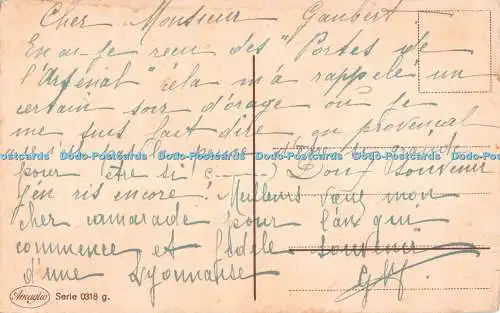 Cher Monsieur Gaubert.
En ai-je reçu des "Portes de
l'Arsenal" cela m'a rappelé un
certain soir d'orage où je
me suis fait dire en provençal
pour être si c--------) Doux Souvenir
j'en ris encore! Meilleurs vœux mon
cher camarade pour l'an qui
commence et fidèle souvenir
d'une Lyonnaise
Amaglio Serie 0318 g.
Dodo-Postcards Dodo-Postcards Dodo-Postcards Dodo-Postcards Dodo-Postcards